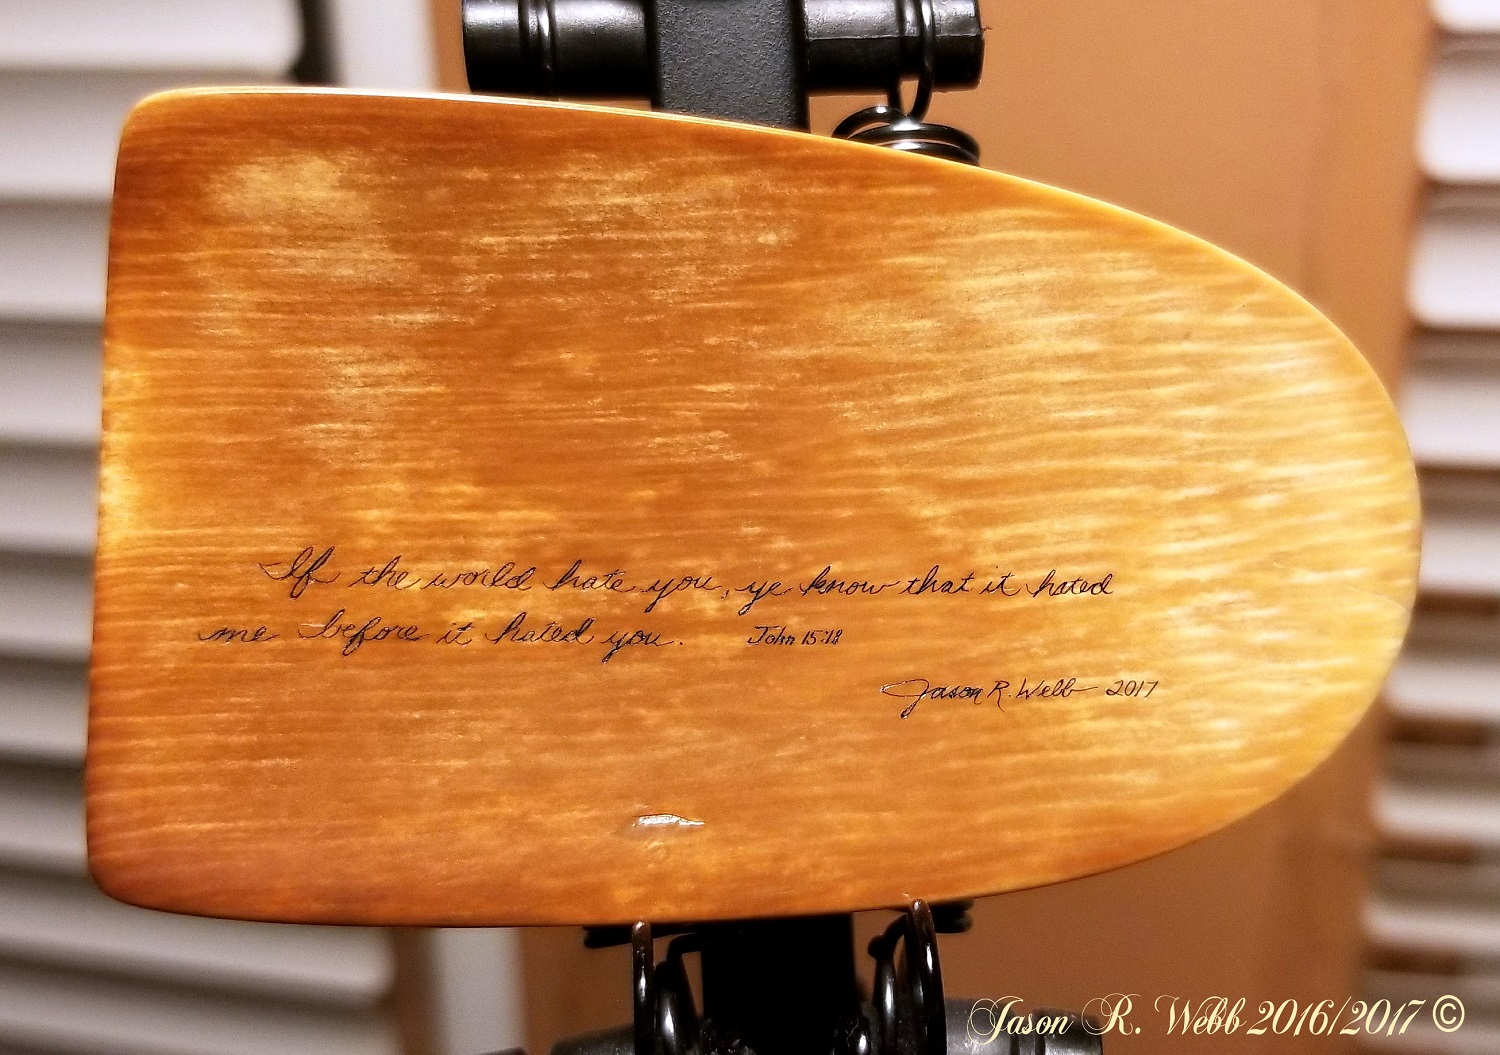 If the world hate you, ye know that it hated
me before it hated you. John 15:18
Jason R. Webb 2017
Jason R. Webb 2016/2017 ©